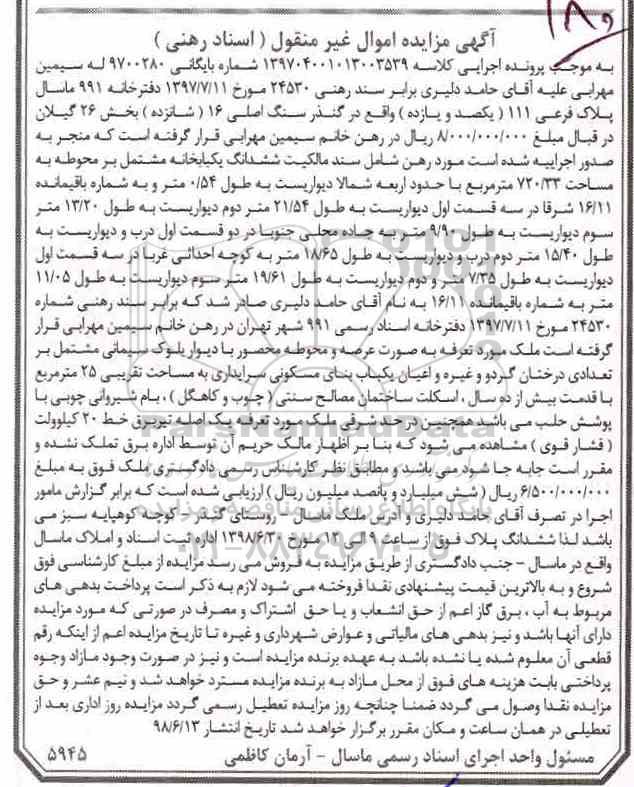 ۱۸۹
آگهی مزایده اموال غیر منقول ( اسناد رهنی )
به موجب پرونده اجرایی کلاسه ۱۳۹۷۰۴۰۰۱۰۱۳۰۰۳۵۳۹ شماره بایگانی ۹۷۰۰۲۸۰ له سیمین
مهرابی علیه آقای حامد دلیری برابر سند رهنی ۲۴۵۳۰ مورخ ۱۳۹۷/۷/۱۱ دفترخانه ۹۹۱ ماسال
پلاک فرعی ۱۱۱ ( یکصد و یازده ) واقع در گندر سنگ اصلی ۱۶ ( شانزده ) بخش ۲۶ گیلان
در قبال مبلغ ۸/۰۰۰/۰۰۰/۰۰۰ ریال در رهن خانم سیمین مهرابی قرار گرفته است که منجر به
صدور اجراییه شده است مورد رهن شامل سند مالکیت ششدانگ یکبابخانه مشتمل بر محوطه به
مساحت ۷۲۰/۳۳ مترمربع با حدود اربعه شمالا دیواریست به طول ۰/۵۴ متر و به شماره باقیمانده
۱۶/۱۱ شرقا در سه قسمت اول دیواریست به طول ۲۱/۵۴ متر دوم دیواریست به طول ۱۳/۲۰ متر
سوم دیواریست به طول ۹/۹۰ متر به جاده محلی جنوبا در دو قسمت اول درب و دیواریست به
طول ۱۵/۴۰ متر دوم درب و دیواریست به طول ۱۸/۶۵ متر به کوچه احداثی غربا در سه قسمت اول
دیواریست به طول ۷/۳۵ متر و دوم دیواریست به طول ۱۹/۶۱ متر سوم دیواریست به طول ۱۱/۰۵
متر به شماره باقیمانده ۱۶/۱۱ به نام آقای حامد دلیری صادر شد که برابر سند رهنی شماره
۲۴۵۳۰ مورخ ۱۳۹۷/۷/۱۱ دفترخانه اسناد رسمی ۹۹۱ شهر تهران در رهن خانم سیمین مهرابی قرار
گرفته است ملک مورد تعرفه به صورت عرصه و محوطه محصور با دیوار بلوک سیمانی مشتمل بر
تعدادی درختان گردو و غیره و اعیان یکباب بنای مسکونی سرایداری به مساحت تقریبی ۲۵ مترمربع
با قدمت بیش از ده سال ، اسکلت ساختمان مصالح سنتی ( چوب و کاهگل ) ، بام شیروانی چوبی با
پوشش حلب می باشد همچنین در حد شرقی ملک مورد تعرفه یک اصله تیربرق خط ۲۰ کیلوولت
( فشار قوی ) مشاهده می شود که بنا بر اظهار مالک حریم آن توسط اداره برق تملک نشده و
مقرر است جابه جا شود می باشد و مطابق نظر کارشناس رسمی دادگستری ملک فوق به مبلغ
۶/۵۰۰/۰۰۰/۰۰۰ ریال ( شش میلیارد و پانصد میلیون ریال ) ارزیابی شده است که برابر گزارش مامور
اجرا در تصرف آقای حامد دلیری و آدرس ملک ماسال - روستای گندر - کوچه کوهپایه سبز می
باشد لذا ششدانگ پلاک فوق از ساعت ۹ الی ۱۲ مورخ ۱۳۹۸/۶/۳۰ اداره ثبت اسناد و املاک ماسال
واقع در ماسال - جنب دادگستری از طریق مزایده به فروش می رسد مزایده از مبلغ کارشناسی فوق
شروع و به بالاترین قیمت پیشنهادی نقدا فروخته می شود لازم به ذکر است پرداخت بدهی های
مربوط به آب ، برق گاز اعم از حق انشعاب و یا حق اشتراک و مصرف در صورتی که مورد مزایده
دارای آنها باشد و نیز بدهی های مالیاتی و عوارض شهرداری و غیره تا تاریخ مزایده اعم از اینکه رقم
قطعی آن معلوم شده یا نشده باشد به عهده برنده مزایده است و نیز در صورت وجود مازاد وجوه
پرداختی بابت هزینه های فوق از محل مازاد به برنده مزایده مسترد خواهد شد و نیم عشر و حق
مزایده نقدا وصول می گردد ضمنا چنانچه روز مزایده تعطیل رسمی گردد مزایده روز اداری بعد از
تعطیلی در همان ساعت و مکان مقرر برگزار خواهد شد تاریخ انتشار ۹۸/۶/۱۳
مسئول واحد اجرای اسناد رسمی ماسال - آرمان کاظمی
۵۹۴۵
ParsNamadData
پایگاه اطلاع رسانی مناقصه و مزایده
۰۲۱-۸۸۳۴۹۶۷۰-۵